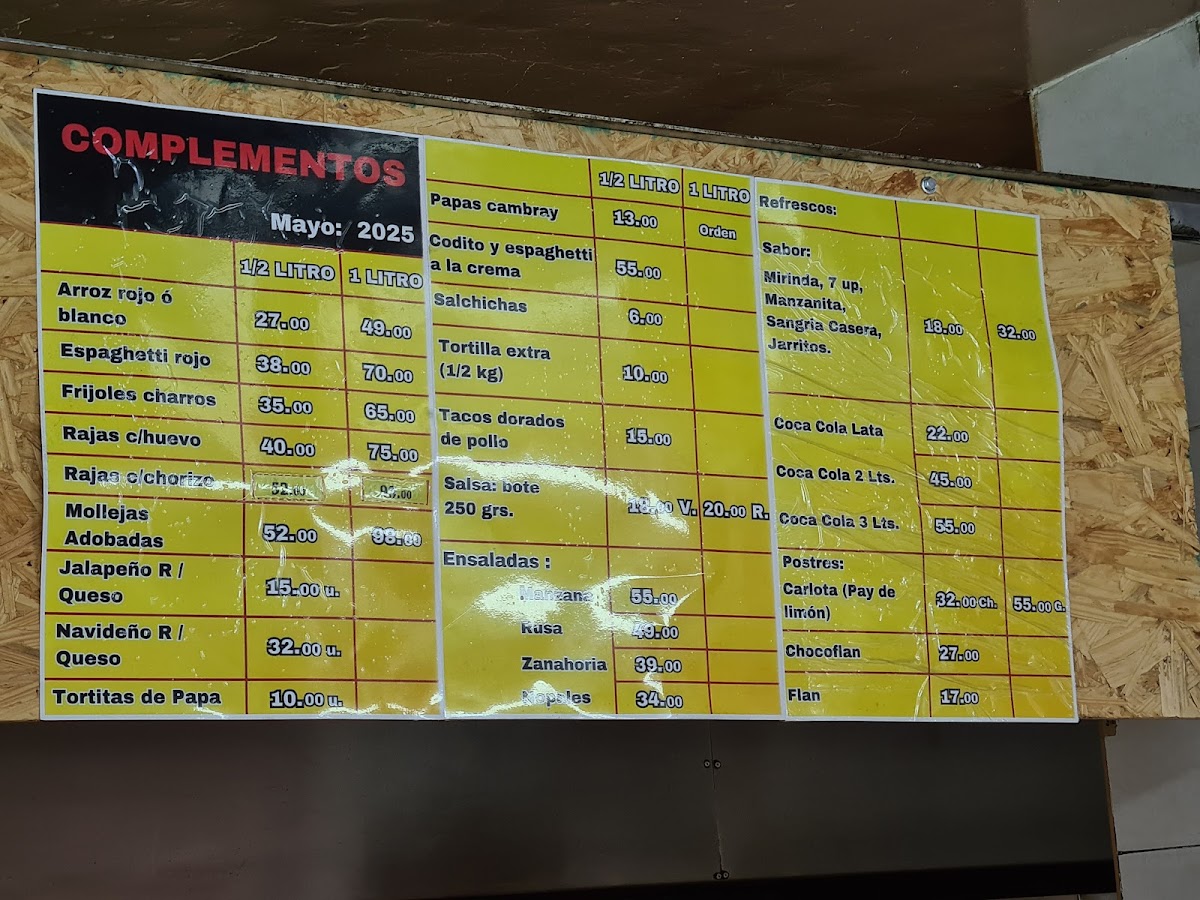 COMPLEMENTOS
Mayo: 2025
1/2 LITRO 1 LITRO
Arroz rojo ó
blanco 27.00 49.00
Espaghetti rojo 38.00 70.00
Frijoles charros 35.00 65.00
Rajas c/huevo 40.00 75.00
Rajas c/chorizo
Mollejas
Adobadas 52.00 98.00
Jalapeño R /
Queso 15.00 u.
Navideño R /
Queso 32.00 u.
Tortitas de Papa 10.00 u.
1/2 LITRO 1 LITRO
Papas cambray 13.00 Orden
Codito y espaghetti
a la crema 55.00
Salchichas 6.00
Tortilla extra
(1/2 kg) 10.00
Tacos dorados
de pollo 15.00
Salsa: bote
250 grs. V. 20.00 R.
Ensaladas :
Manzana 55.00
Rusa 49.00
Zanahoria 39.00
Nopales 34.00
Refrescos:
Sabor:
Mirinda, 7 up,
Manzanita,
Sangria Casera,
Jarritos.
18.00 32.00
Coca Cola Lata 22.00
Coca Cola 2 Lts. 45.00
Coca Cola 3 Lts. 55.00
Postres:
Carlota (Pay de
limón) 32.00 Ch. 55.00 G.
Chocoflan 27.00
Flan 17.00